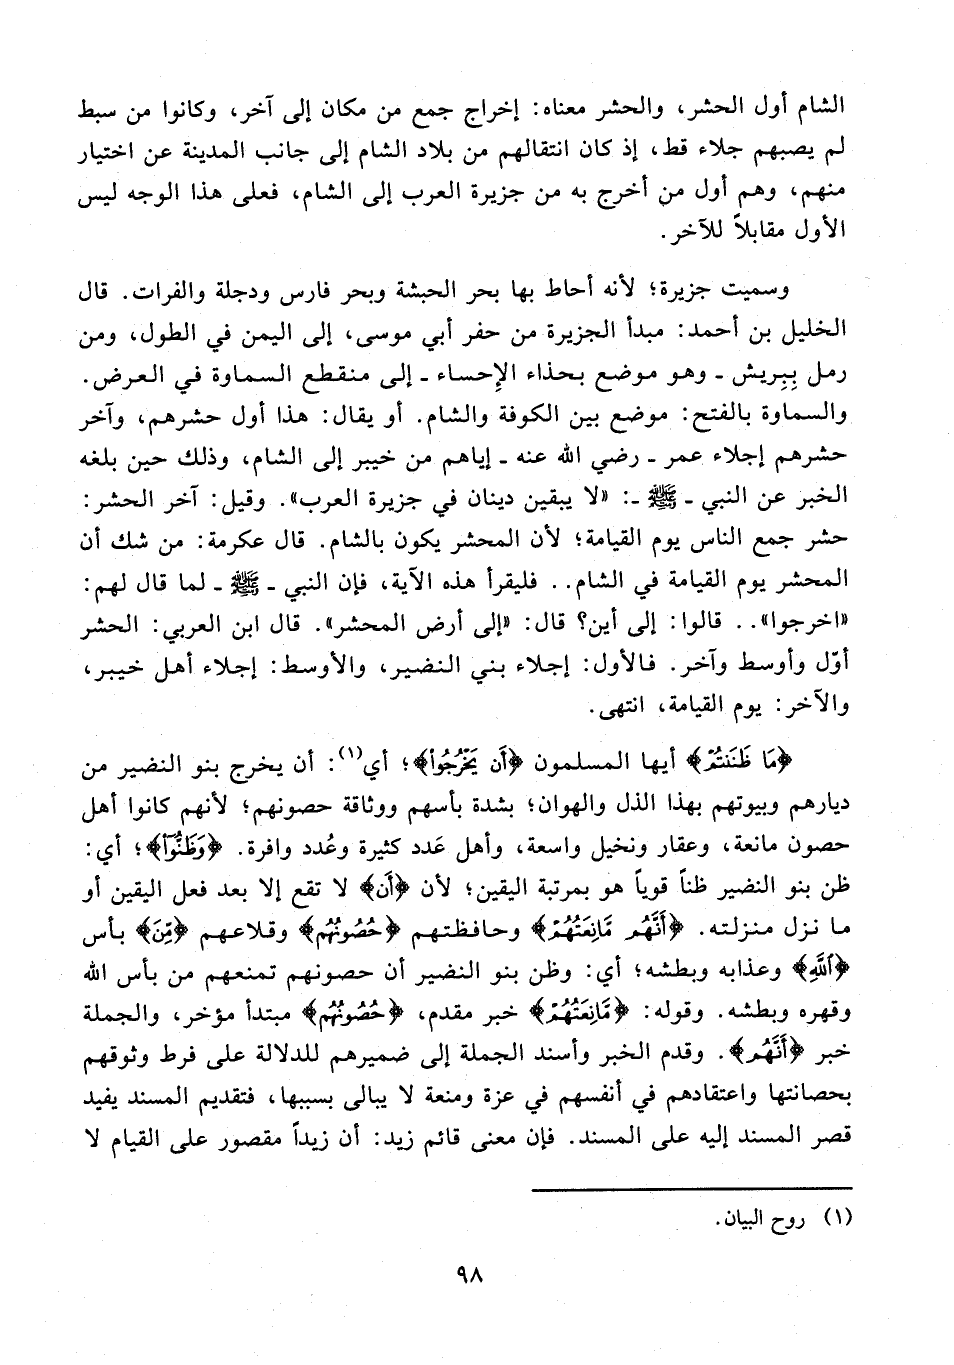 الشام أول الحشر، والحشر معناه: إخراج جمع من مكان إلى آخر، وكانوا من سبط
لم يصبهم جلاء قط، إذ كان انتقالهم من بلاد الشام إلى جانب المدينة عن اختيار
منهم، وهم أول من أخرج به من جزيرة العرب إلى الشام، فعلى هذا الوجه ليس
الأول مقابلاً للآخر.
وسميت جزيرة؛ لأنه أحاط بها بحر الحبشة وبحر فارس ودجلة والفرات. قال
الخليل بن أحمد: مبدأ الجزيرة من حفر أبي موسى، إلى اليمن في الطول، ومن
رمل بِبِريش ـ وهو موضع بحذاء الإِحساء ـ إلى منقطع السماوة في العرض.
والسماوة بالفتح: موضع بين الكوفة والشام. أو يقال: هذا أول حشرهم، وآخر
حشرهم إجلاء عمر ـ رضي الله عنه ـ إياهم من خيبر إلى الشام، وذلك حين بلغه
الخبر عن النبي ـ ﷺ ـ: «لا يبقين دينان في جزيرة العرب». وقيل: آخر الحشر:
حشر جمع الناس يوم القيامة؛ لأن المحشر يكون بالشام. قال عكرمة: من شك أن
المحشر يوم القيامة في الشام.. فليقرأ هذه الآية، فإن النبي ـ ﷺ ـ لما قال لهم:
«اخرجوا».. قالوا: إلى أين؟ قال: «إلى أرض المحشر». قال ابن العربي: الحشر
أوّل وأوسط وآخر. فالأول: إجلاء بني النضير، والأوسط: إجلاء أهل خيبر،
والآخر: يوم القيامة، انتهى.
﴿مَا ظَنَنتُمْ﴾ أيها المسلمون ﴿أَن يَخْرُجُوا۟﴾؛ أي(١): أن يخرج بنو النضير من
ديارهم وبيوتهم بهذا الذل والهوان؛ بشدة بأسهم ووثاقة حصونهم؛ لأنهم كانوا أهل
حصون مانعة، وعقار ونخيل واسعة، وأهل عَدد كثيرة وعُدد وافرة. ﴿وَظَنُّوٓا۟﴾؛ أي:
ظن بنو النضير ظناً قوياً هو بمرتبة اليقين؛ لأن ﴿أَن﴾ لا تقع إلا بعد فعل اليقين أو
ما نزل منزلته. ﴿أَنَّهُم مَّانِعَتُهُمْ﴾ وحافظتهم ﴿حُصُونُهُم﴾ وقلاعهم ﴿مِّنَ﴾ بأس
﴿ٱللَّهِ﴾ وعذابه وبطشه؛ أي: وظن بنو النضير أن حصونهم تمنعهم من بأس الله
وقهره وبطشه. وقوله: ﴿مَّانِعَتُهُمْ﴾ خبر مقدم، ﴿حُصُونُهُم﴾ مبتدأ مؤخر، والجملة
خبر ﴿أَنَّهُم﴾. وقدم الخبر وأسند الجملة إلى ضميرهم للدلالة على فرط وثوقهم
بحصانتها واعتقادهم في أنفسهم في عزة ومنعة لا يبالى بسببها، فتقديم المسند يفيد
قصر المسند إليه على المسند. فإن معنى قائم زيد: أن زيداً مقصور على القيام لا
(١) روح البيان.
٩٨